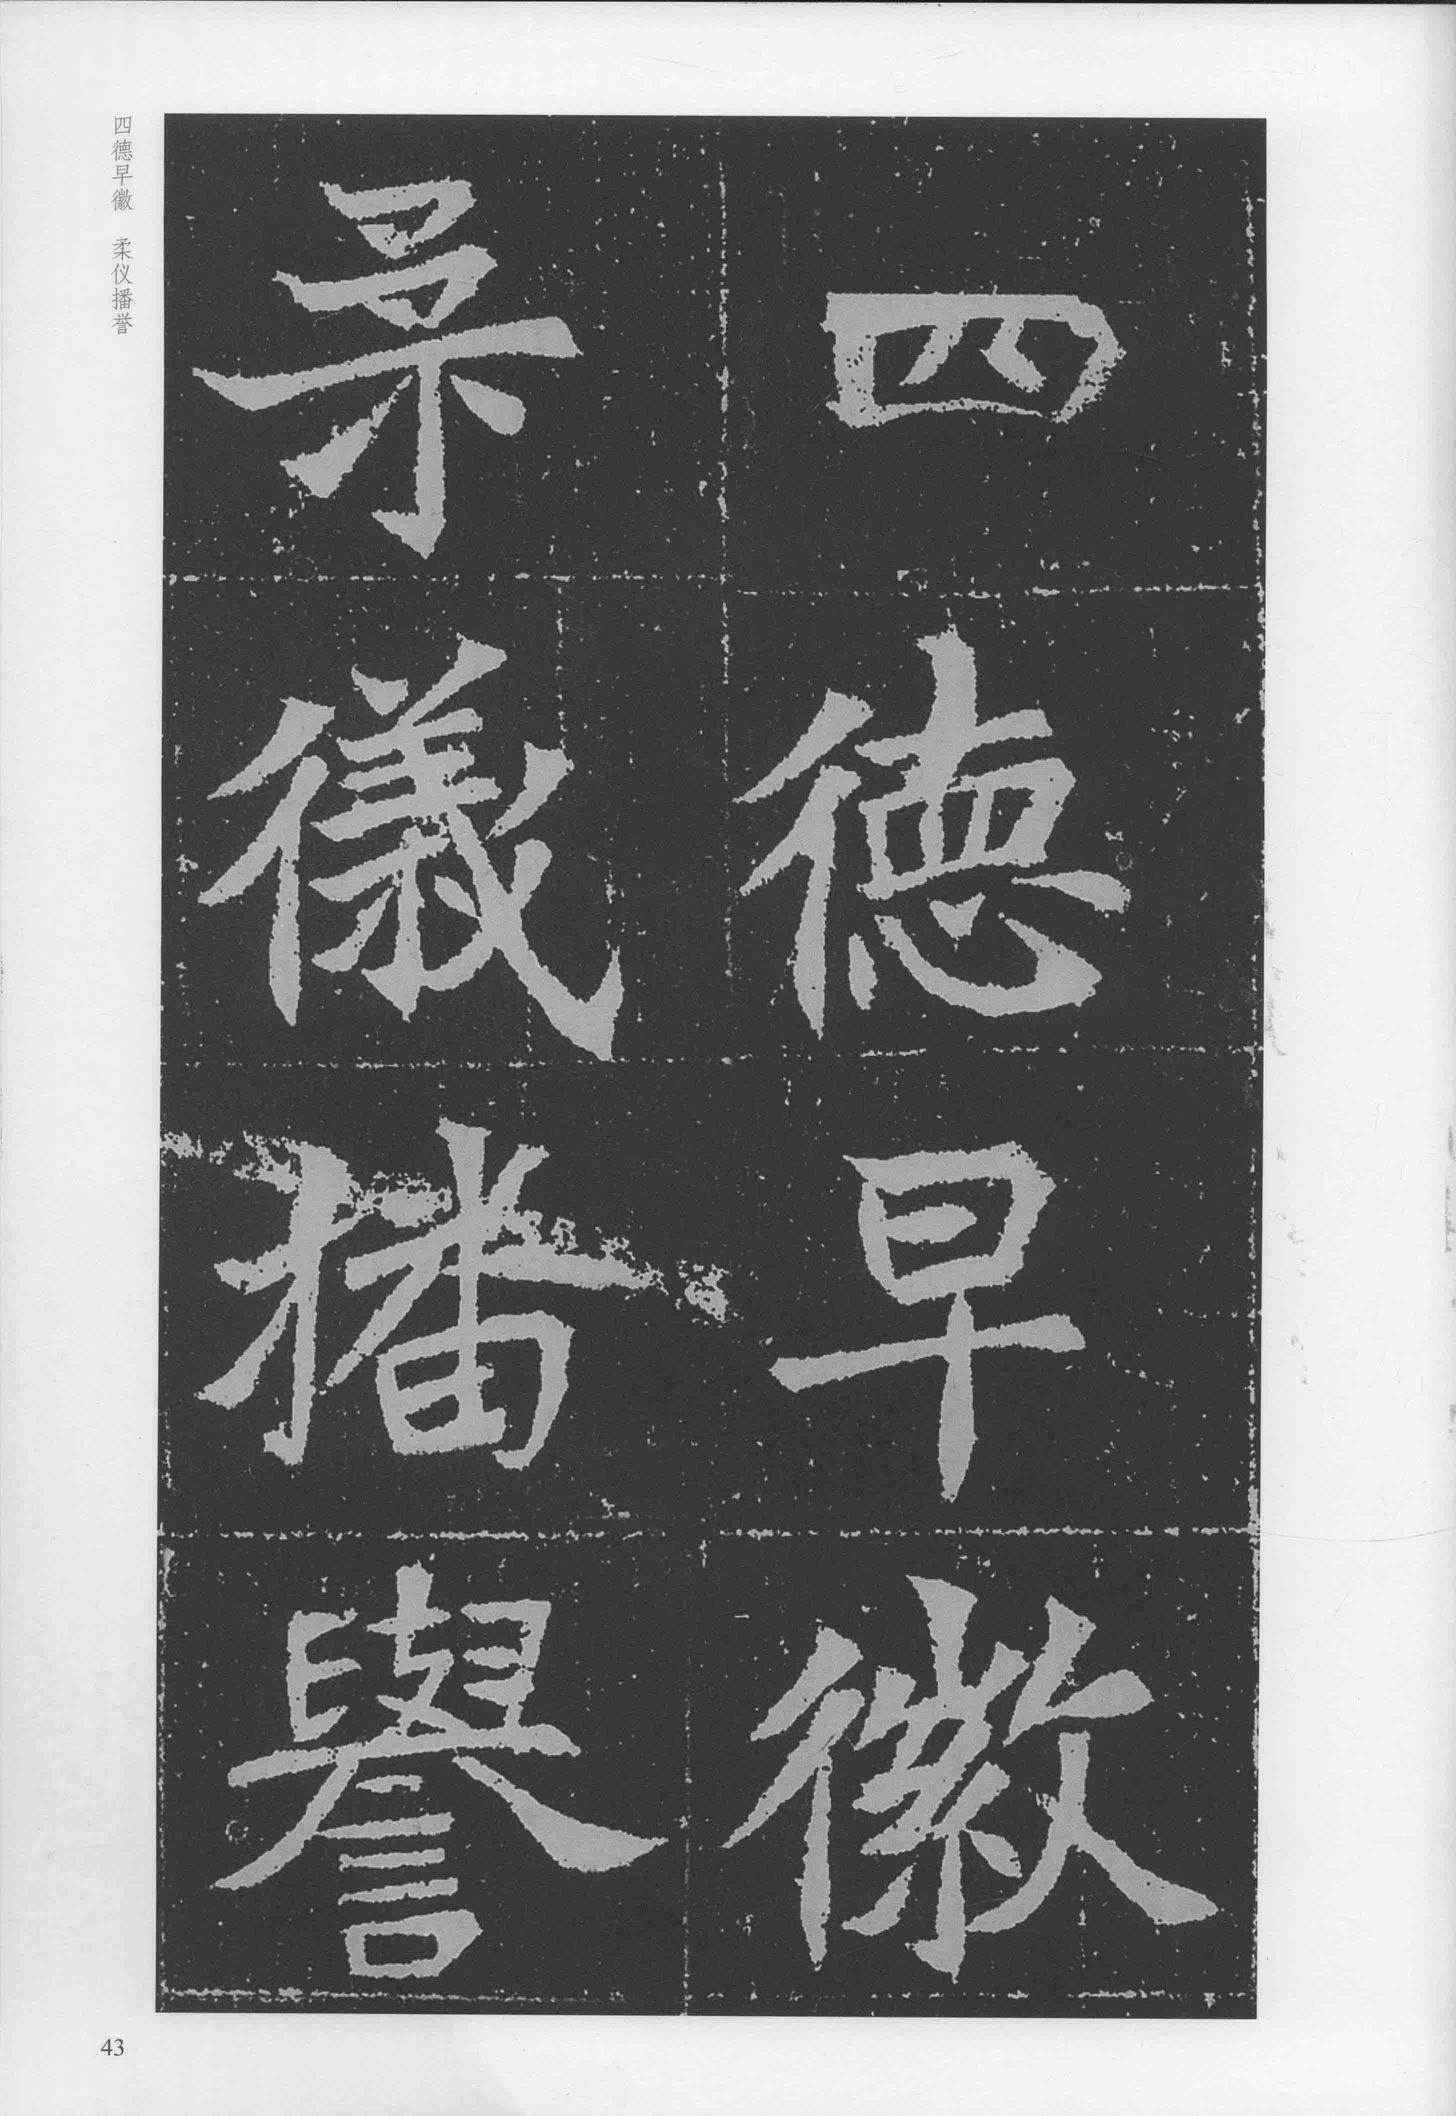 四德早徽
柔儀播譽
四德早徽　柔仪播誉
43